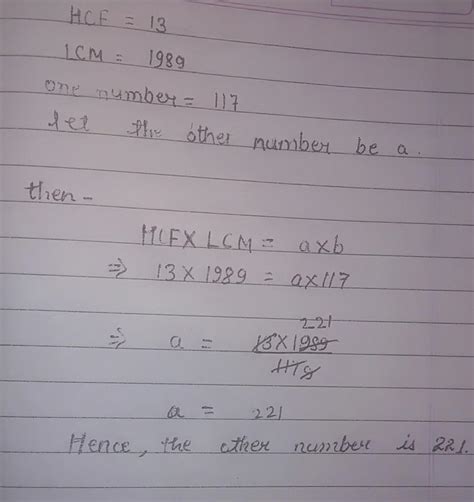 HCF = 13
LCM = 1989
one number = 117
let the other number be a.
then -
HCF X LCM = a x b
⇒ 13 X 1989 = a x 117
221
⇒ a = 13 X 1989
117 9
a = 221
Hence, the other number is 221.